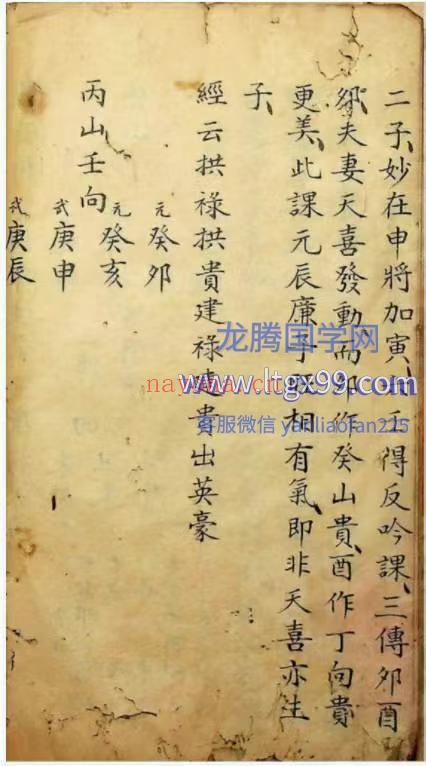 二子、妙在申將加寅、壬得反吟課、三傳夘酉
夘、夫妻天喜發動、而夘作癸山貴、酉作丁向貴
更美、此課元辰廉子相有氣、即非天喜亦生
子、
經云拱祿拱貴建祿建貴出英豪
丙山壬向
元癸夘
元癸亥
弍庚申
弍庚辰
龙腾国学网
www.ltgx99.com
客服微信 yanliaofan225